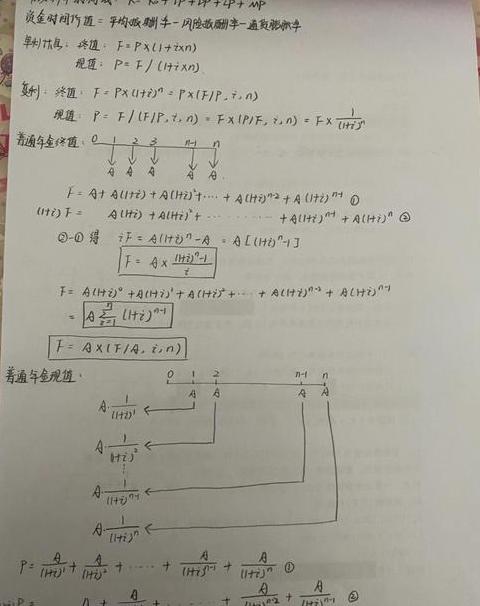 K = K₀ + IP + DP + LP + MP
资金时间价值 = 平均报酬率 - 风险报酬率 - 通货膨胀率
单利计息: 终值: F = P×(1+i×n)
现值: P = F/(1+i×n)
复利: 终值: F = P×(1+i)ⁿ = P×(F/P, i, n)
现值: P = F/(F/P, i, n) = F×(P/F, i, n) = F× 1/(1+i)ⁿ
普通年金终值: 0 1 2 3 n-1 n
A A A A A
F = A + A(1+i) + A(1+i)² + ···· + A(1+i)ⁿ⁻² + A(1+i)ⁿ⁻¹ ①
(1+i)F = A(1+i) + A(1+i)² + ········· + A(1+i)ⁿ⁻¹ + A(1+i)ⁿ ②
②-① 得 iF = A(1+i)ⁿ - A = A[(1+i)ⁿ-1]
F = A × ((1+i)ⁿ-1)/i
F = A(1+i)⁰ + A(1+i)¹ + A(1+i)² + ··· + A(1+i)ⁿ⁻² + A(1+i)ⁿ⁻¹
= A Σ (1+i)ⁿ⁻¹
F = A×(F/A, i, n)
普通年金现值: 0 1 2 n-1 n
A A A A
A· 1/(1+i)¹
A· 1/(1+i)²
⋮
A· 1/(1+i)ⁿ⁻¹
A· 1/(1+i)ⁿ
P = A/(1+i)¹ + A/(1+i)² + ····· + A/(1+i)ⁿ⁻¹ + A/(1+i)ⁿ ①
A + A + ······ + A/(1+i)ⁿ⁻² + A/(1+i)ⁿ⁻¹ ②